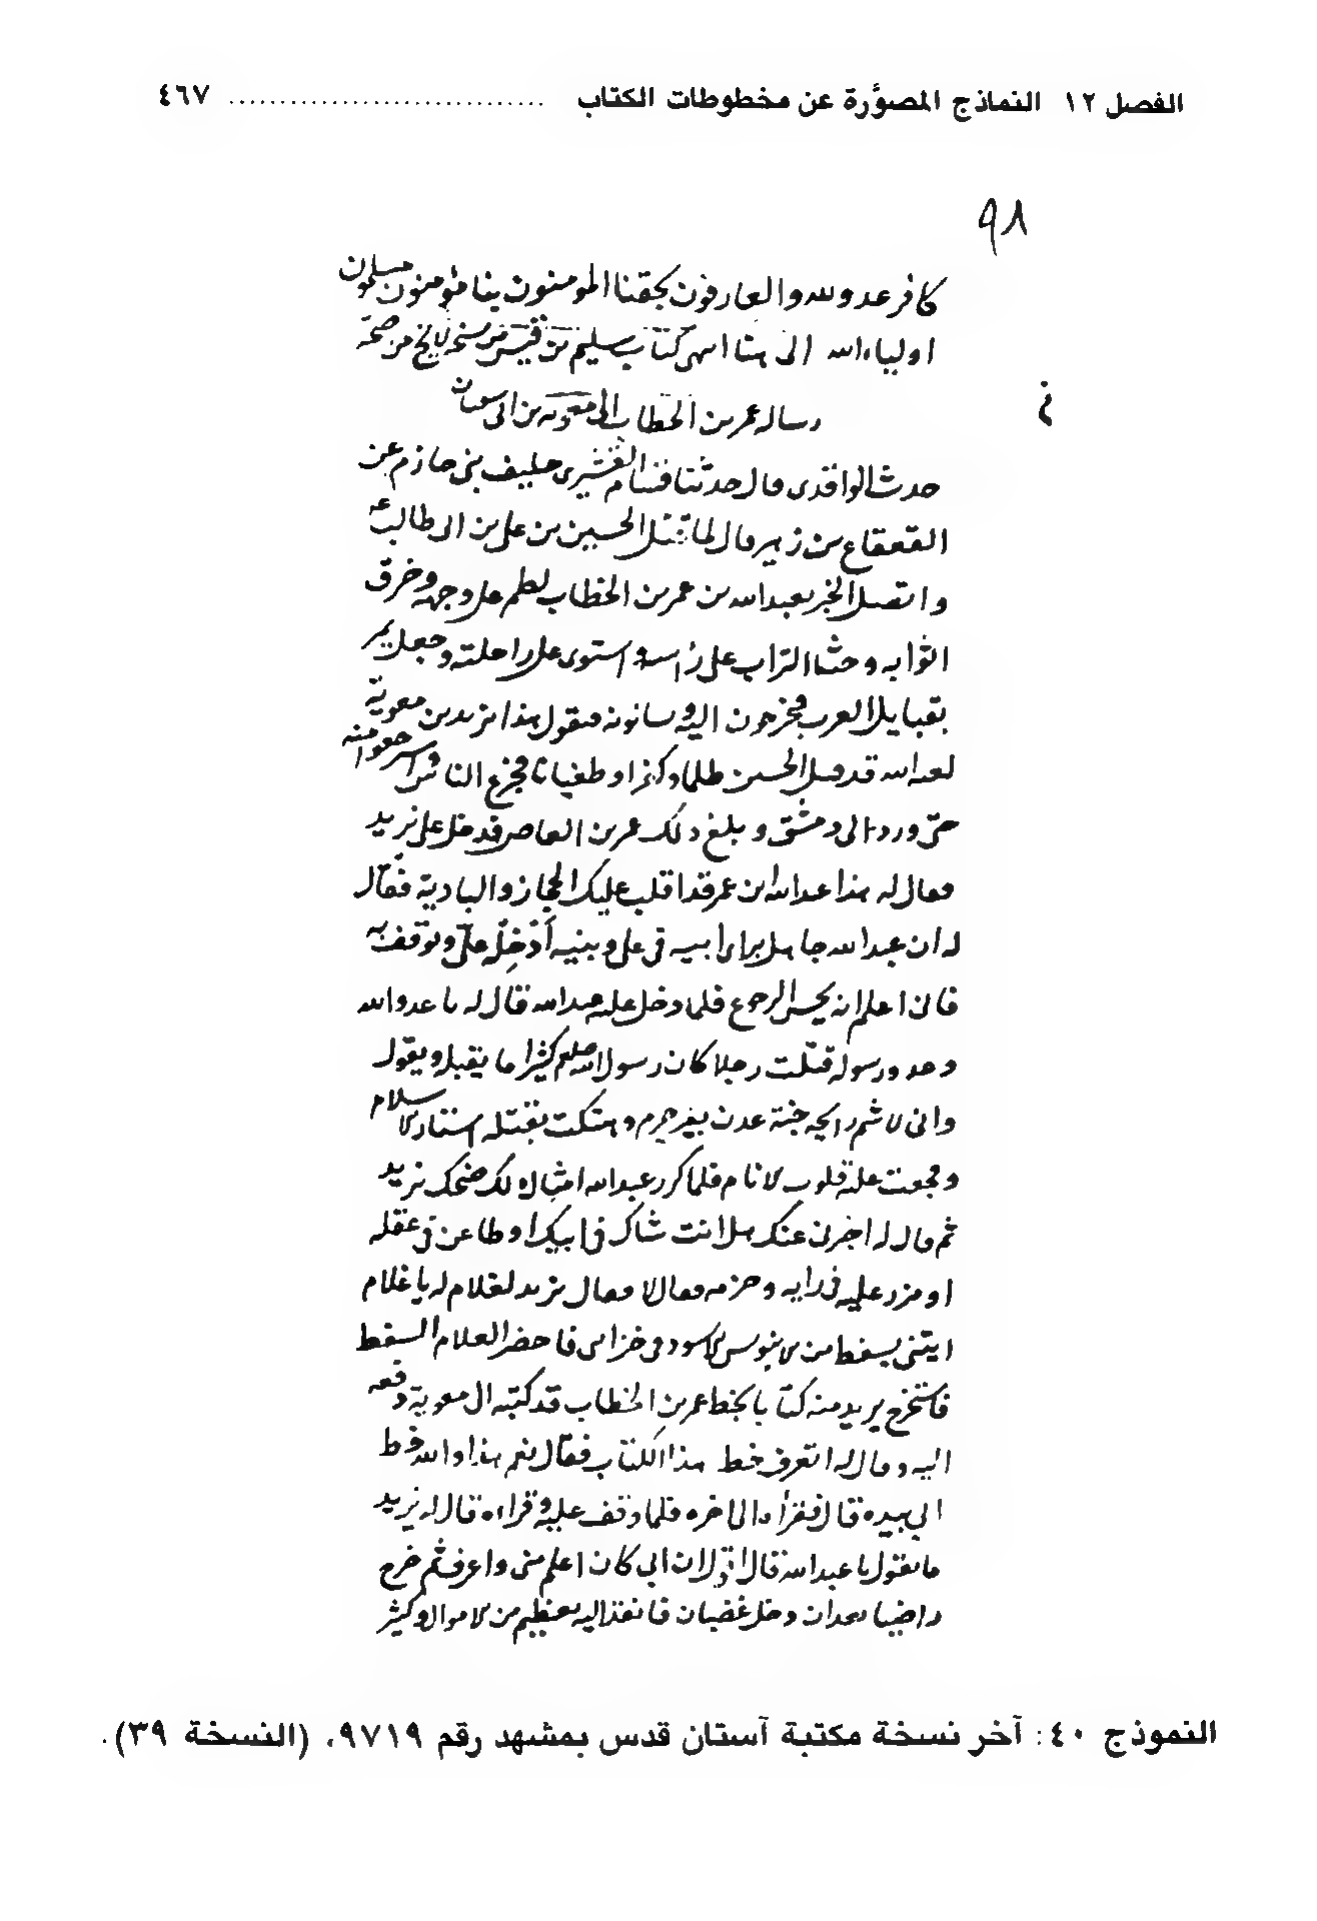 الفصل ١٢ النماذج المصوَّرة عن مخطوطات الكتاب .............................. ٤٦٧
٩٨
كافر عدو لله والعارفون بحقنا المومنون بنا مؤمنون مسلمون
اولياء الله الى هنا انتهى كتاب سليم بن قيس من نسخة لا يخ من صحة
رساله عمر بن الخطاب الى معويه بن ابى سفيان
حدث الواقدى قال حدثنا هشام القشيرى حليف بنى حازم عن
القعقاع بن زهير قال لما قتل الحسين بن على بن ابى طالب ع
واتصل الخبر بعبد الله بن عمر بن الخطاب لطم على وجهه وخرق
اثوابه وحثا التراب على راسه واستوى على راحلته وجعل يمر
بقبايل العرب فيخرجون اليه ويسالونه فيقول هذا يزيد بن معوية
لعنه الله قد قتل الحسين ظلما وكفرا وطغيانا فجزع الناس واسترجعوا منه
حتى ورد الى دمشق وبلغ ذلك عمر بن العاص فدخل على يزيد
فقال له هذا عبد الله ابن عمر قد اقلب عليك الحجاز والبادية فقال
له ان عبد الله جاهل براى ابيه فى على وبنيه أدْخِلْه علىّ ونوقفه به
فانى اعلم انه يحسن الرجوع فلما دخل عليه عبد الله قال له يا عدو الله
وعدو رسوله قتلت رجلا كان رسول الله صلعم كثيرا ما يقبله ويقول
وانى لاشم رايحه جنة عدن بغير جرم وهتكت بقتله استار الاسلام
وفجعت عليه قلوب الانام فلما كرر عبد الله امثال ذلك ضحك يزيد
ثم قال له اخبرنى عنك هل انت شاك فى ابيك او طاعن فى عقله
او مزر عليه فى رايه وحزمه فقال لا فقال يزيد لغلام له يا غلام
ايتنى بسفط من الابنوس الاسود فى خزانى فاحضر الغلام السفط
فاستخرج يزيد منه كتابا بخط عمر بن الخطاب قد كتبه الى معوية دفعه
اليه وقال له اتعرف خط هذا الكتاب فقال نعم هذا والله خط
ابى بيده قال فقرأه الى اخره فلما وقف عليه وقراءه قال له يزيد
ما تقول يا عبد الله قال اقول ان ابى كان اعلم منى واعرف ثم خرج
راضيا بعد ان دخل غضبان فانفذ اليه بعظيم من الاموال وكثير
النموذج ٤٠: آخر نسخة مكتبة آستان قدس بمشهد رقم ٩٧١٩، (النسخة ٣٩).